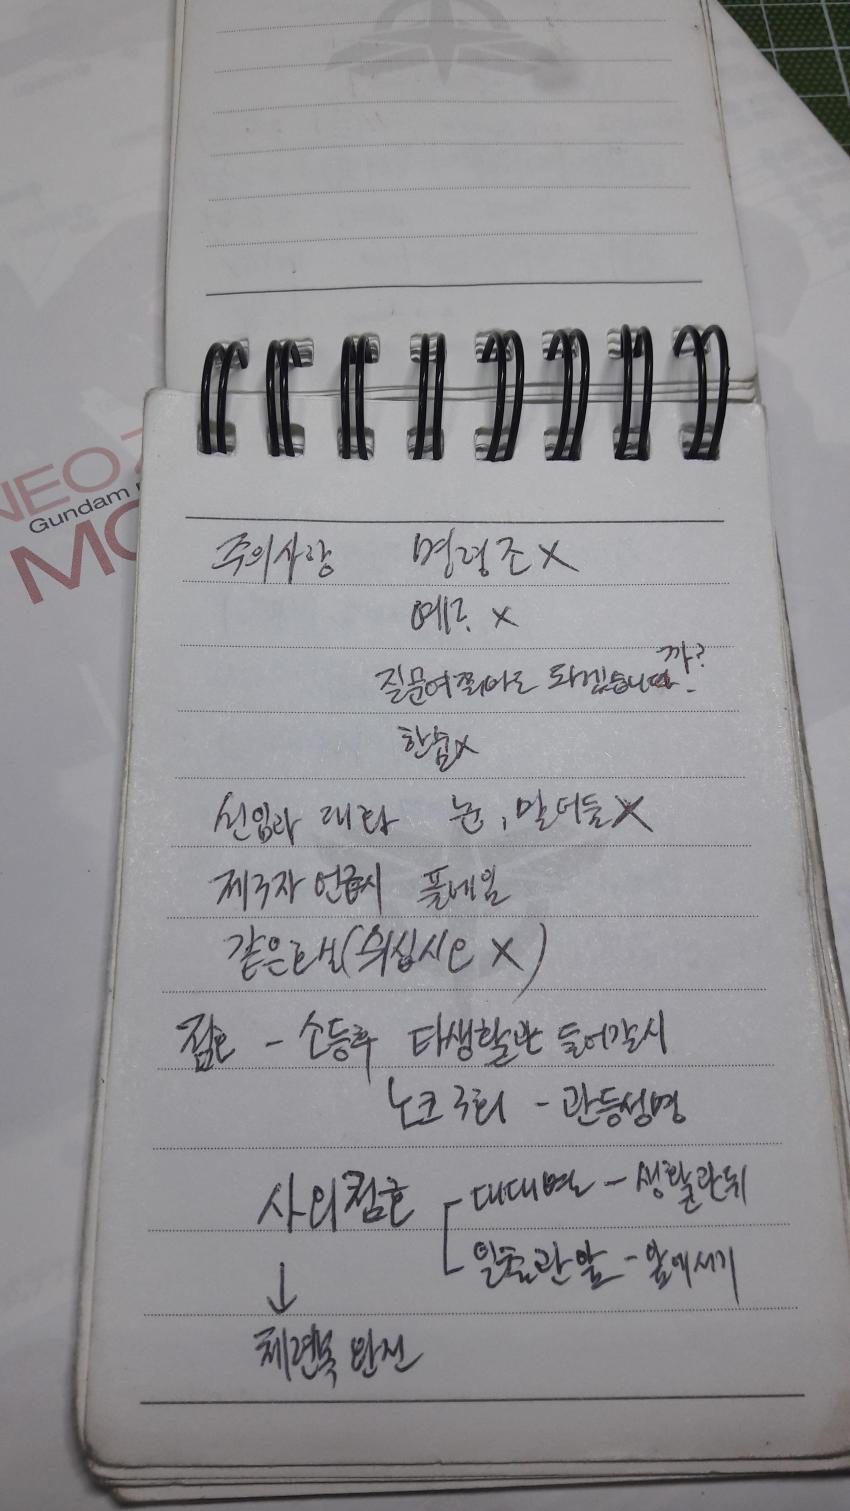 NEO Z
Gundam
MO
주의사항 명령조 X
예 X
질문여쭤봐도 되겠습니까?
한숨 X
선임과 대화 눈, 말더듬 X
제3자 언급시 풀네임
같은호실 (쉬십시오 X)
점호 - 소등후 타생활관 들어갈시
노크 3회 - 관등성명
사외점호 대대별 - 생활관뒤
앞 - 앞에서기
↓
체련복 완전